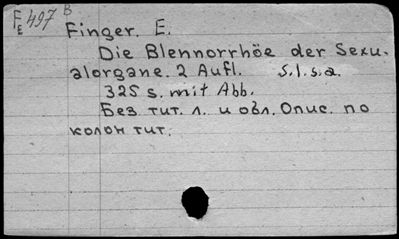 Fᴇ 497 B
Finger. E.
Die Blennorrhöe der Sexu-
alorgane. 2 Aufl. S. l. s. a.
325 s. mit Abb.
Без тит. л. и обл. Опис. по
колон тит.